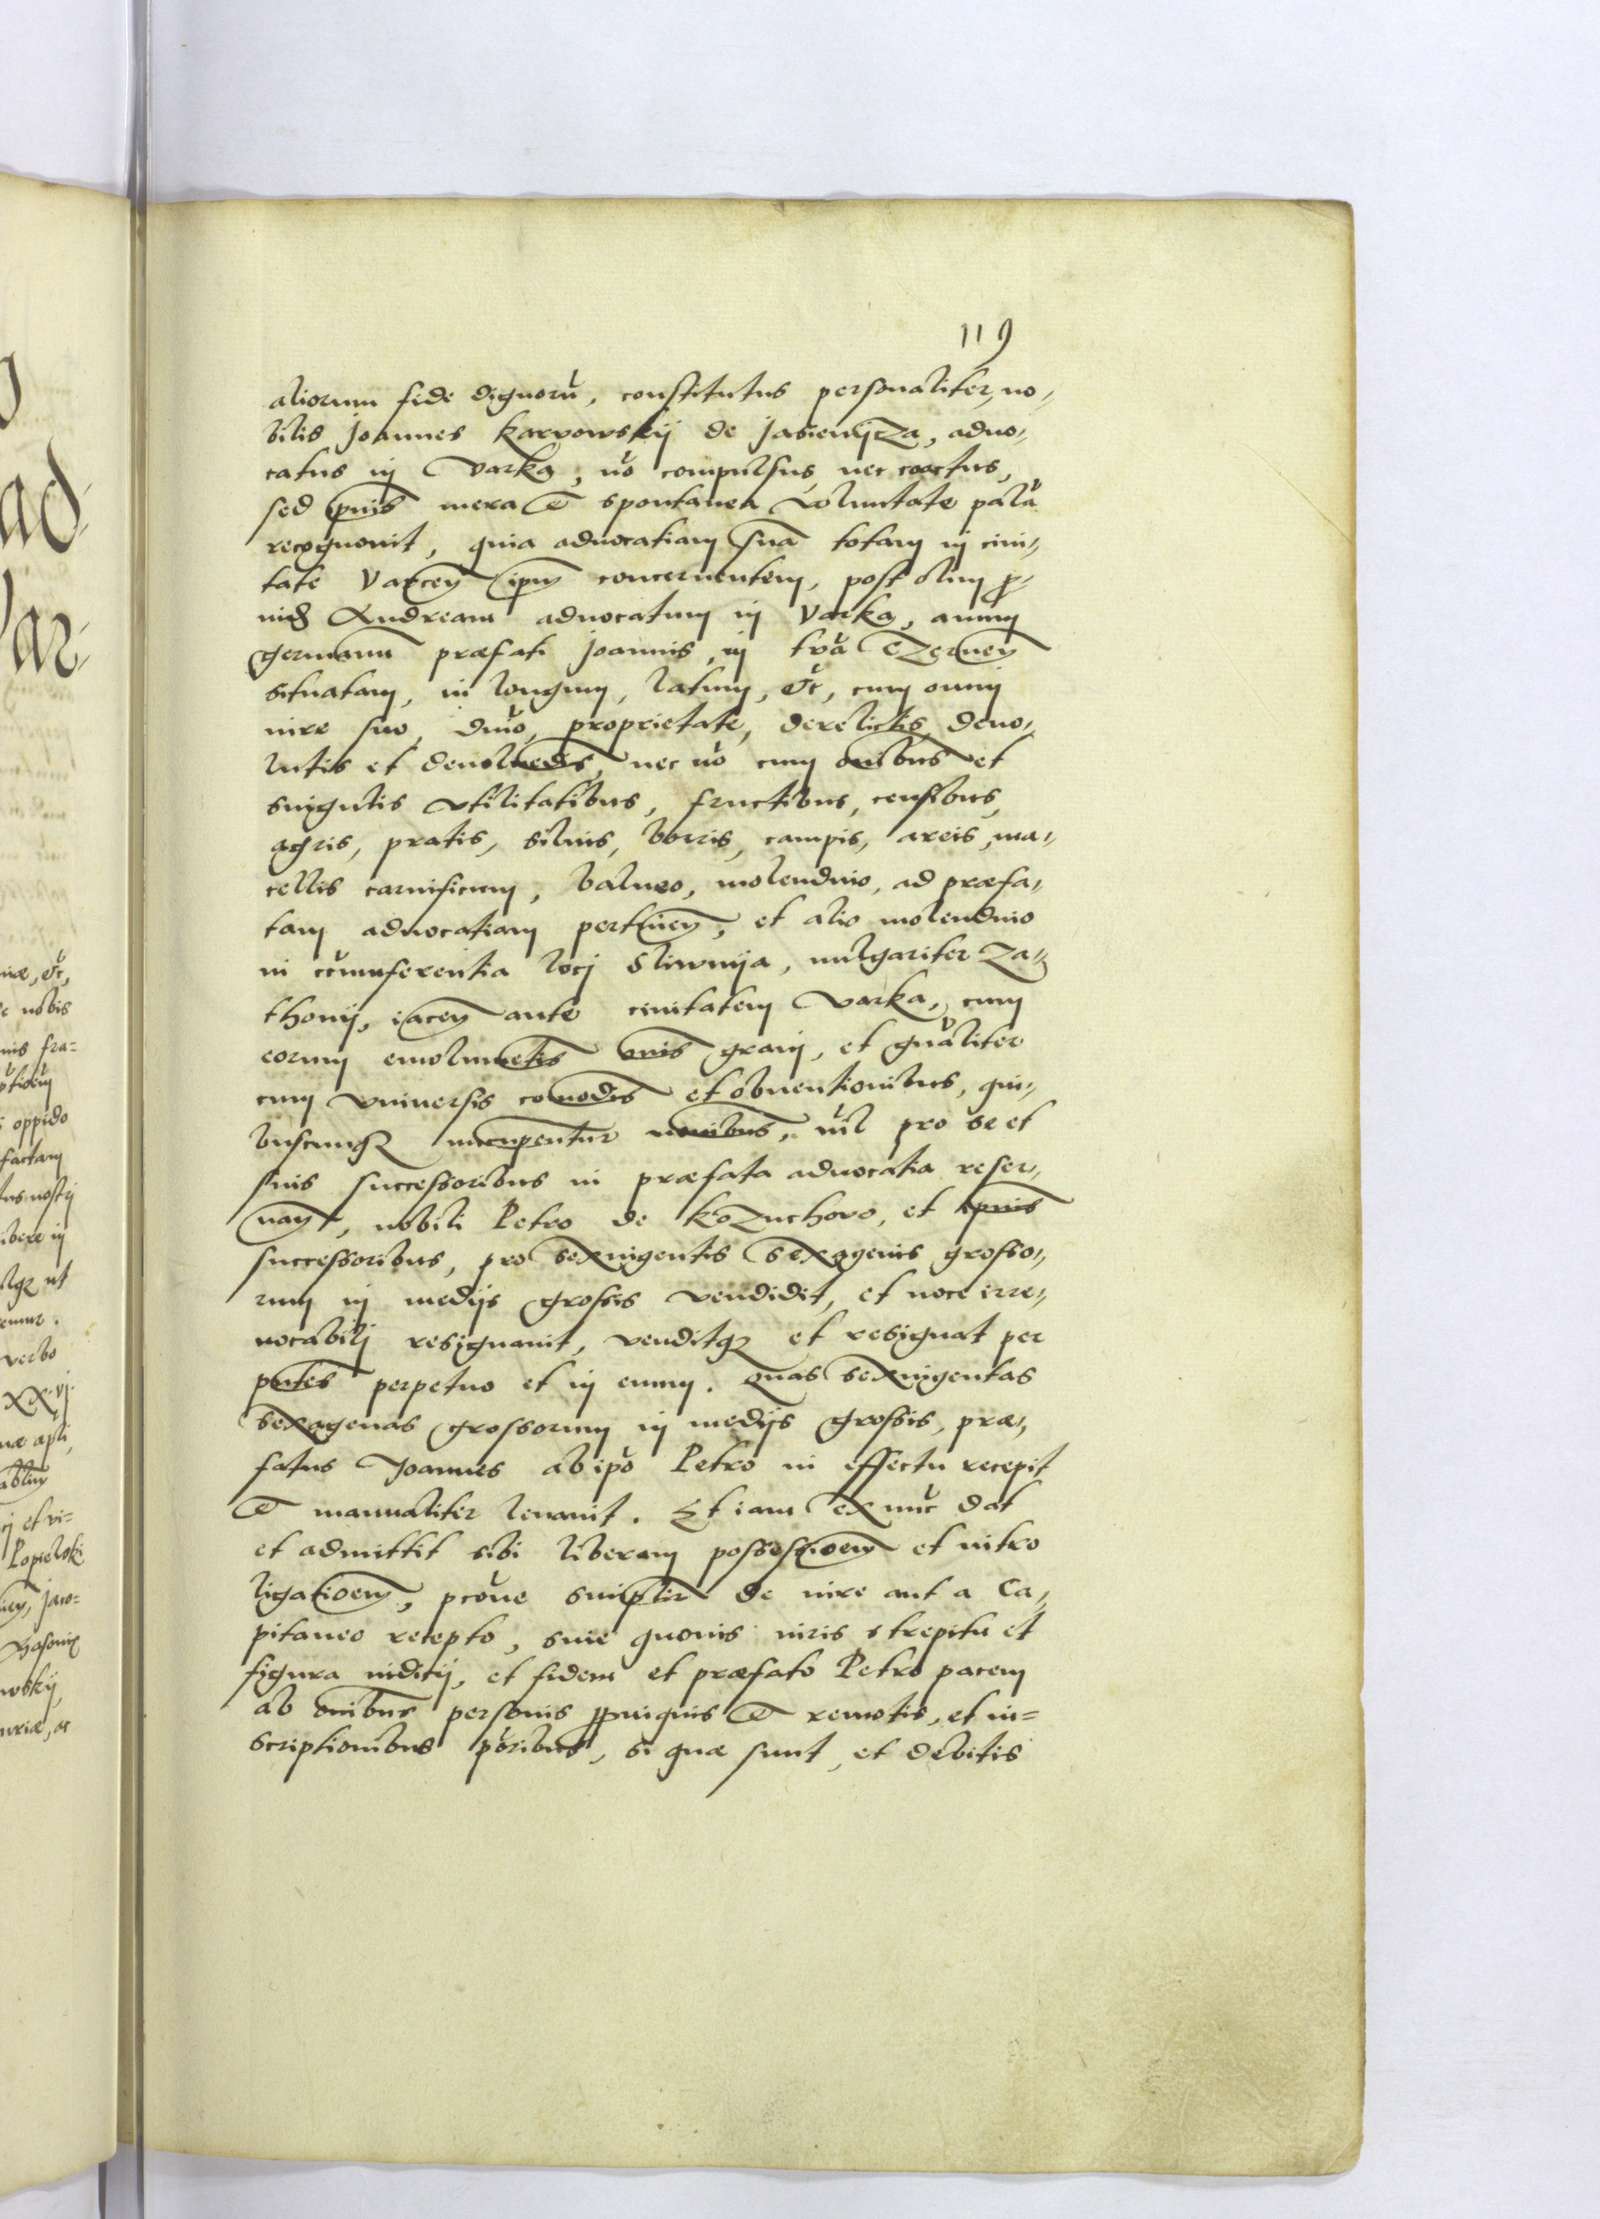 119
aliorum fide dignorū, constitutus personaliter, no-
bilis Joannes Karvowskij de Jasienijcza, aduo-
catus in Varka, nō compulsus, nec coactus,
sed mera et spontanea Voluntate palā
recognouit, quia aduocatiam suā totam in ciui-
tate Varcen̄ ip̄m concernentem, post olim pro-
uid Andream aduocatum in Varka,
germanū præfati Joannis, in trā Czernen̄
situatam, in longum, latum, &c, cum omni
iure suo, dn̄io, proprietate, derelictis, deuo-
lutis et deuoluēdis, nec nō cum ōnibus et
singulis Vtilitatibus, fructibus, censibus,
agris, pratis, siluis, borris, campis, areis, ma-
cellis carnificum, balneo, molendino, ad præfa-
tam aduocatiam pertinen̄, et alio molendino
in circumferentia locj Sliwnija, vulgariter Za-
thonij, iacen̄ ante ciuitatem Varka, cum
eorum emolumētis ōnis grani, et gn̄aliter
cum Vniuersis comodis et obuentionibus, qui-
buscunq nuncupentur nominibus, nil pro se et
suis successoribus in præfata aduocatia reser-
uan̄t, nobili Petro de Kozuchovo, et ipsius
successoribus, pro sexingentis sexagenis grosso-
rum in medijs grossis vendidit, et uoce irre-
uocabilj resignauit, venditq et resignat per
pn̄tes perpetuo et in euum. Quas sexingentas
sexagenas grossorum in medijs grossis, præ-
fatus Joannes ab ipō Petro in effectu recepit
et manualiter leuauit. Et iam ex nūc dat
et admittit sibi liberam possessioem̄ et intro
ligatioem̄, de iure aut a Ca-
pitaneo recepto, sine quouis iuris strepitu et
figura iudicij, et fidem et præfato Petro pacem
ab ōnibus personis ꝓpinquis et remotis, et in=
scriptionibus pōribus, si quæ sunt, et debitis